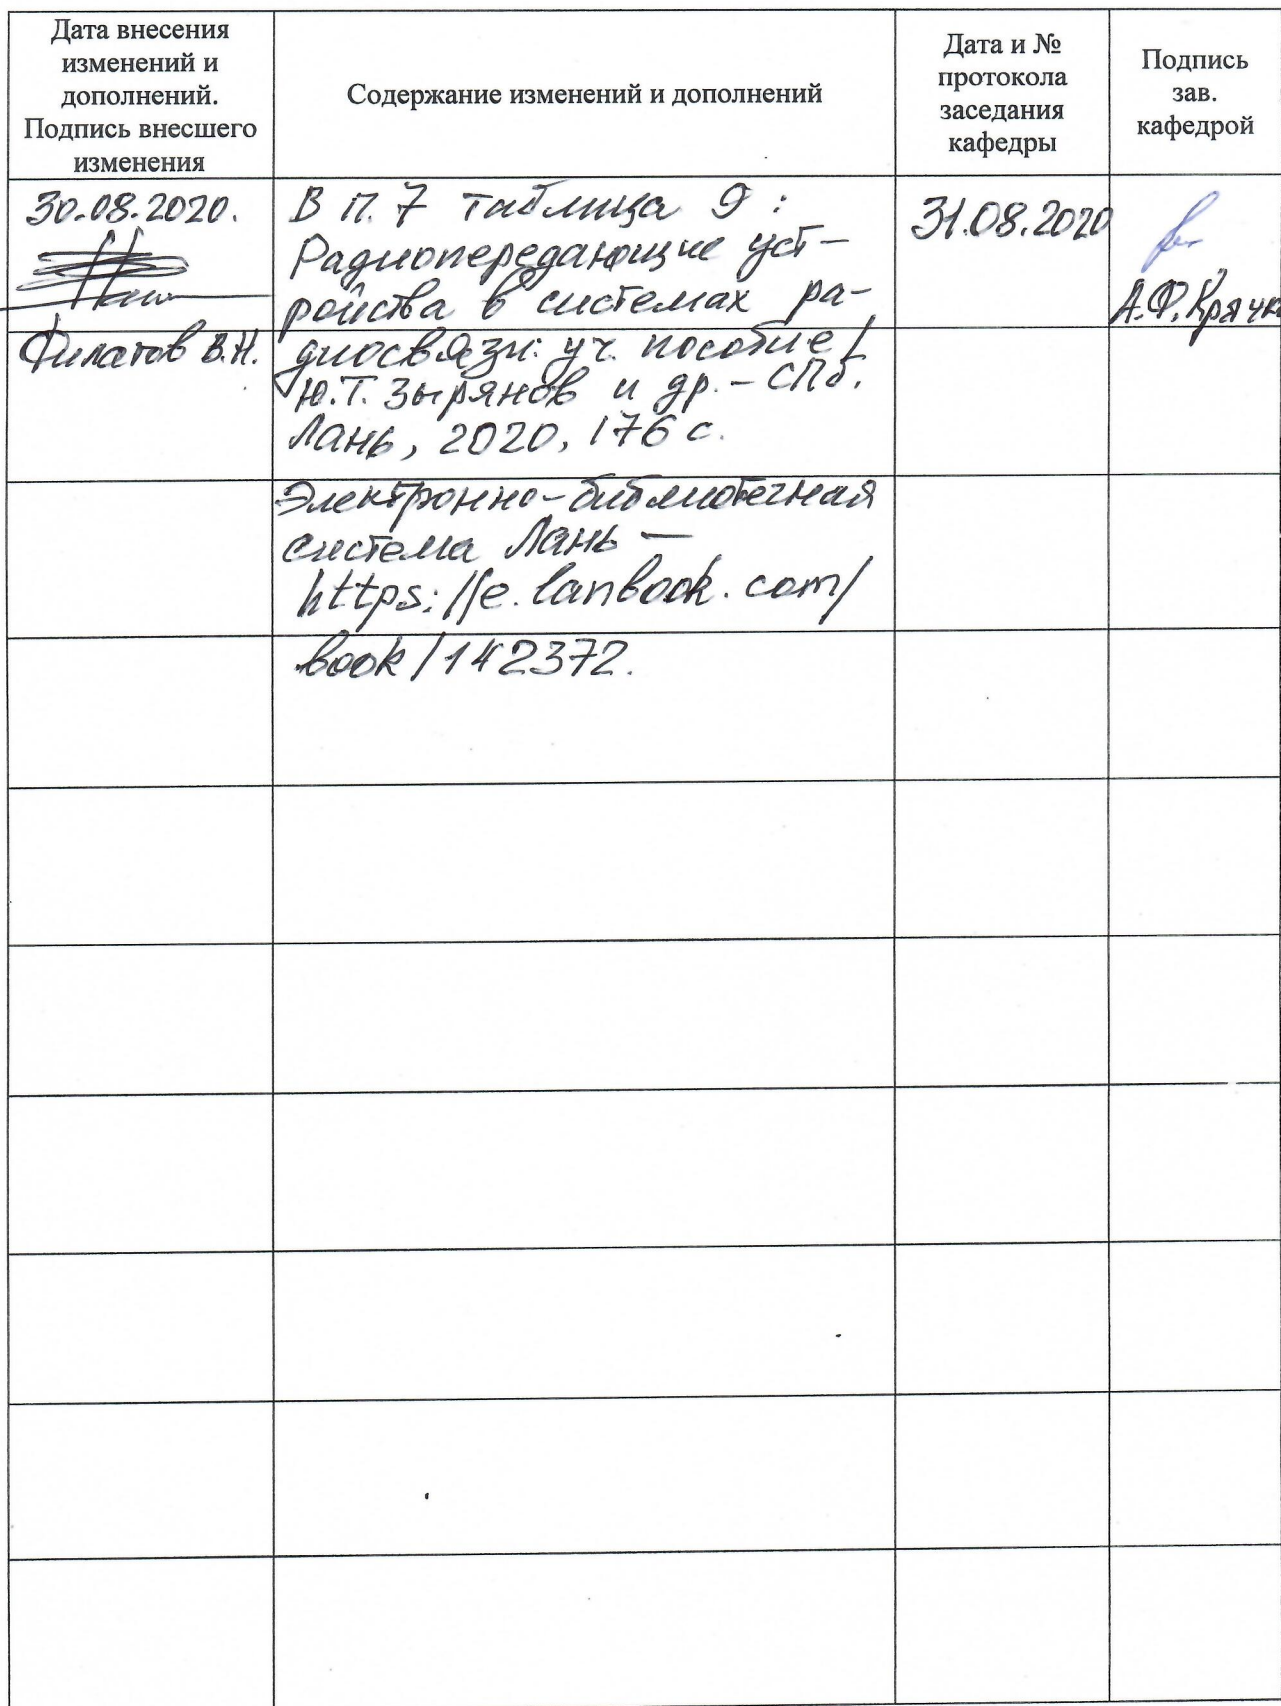 Дата внесения
изменений и
дополнений.
Подпись внесшего
изменения
Содержание изменений и дополнений
Дата и №
протокола
заседания
кафедры
Подпись
зав.
кафедрой
30.08.2020.
Филатов В.Н.
В п. 7 таблица 9 :
Радиопередающие уст-
ройства в системах ра-
диосвязи: уч. пособие /
Ю.Т. Зырянов и др. – СПб.
Лань, 2020, 176 с.
Электронно-библиотечная
система Лань —
https://e.lanbook.com/
book/142372.
31.08.2020
А.Ф. Крячк